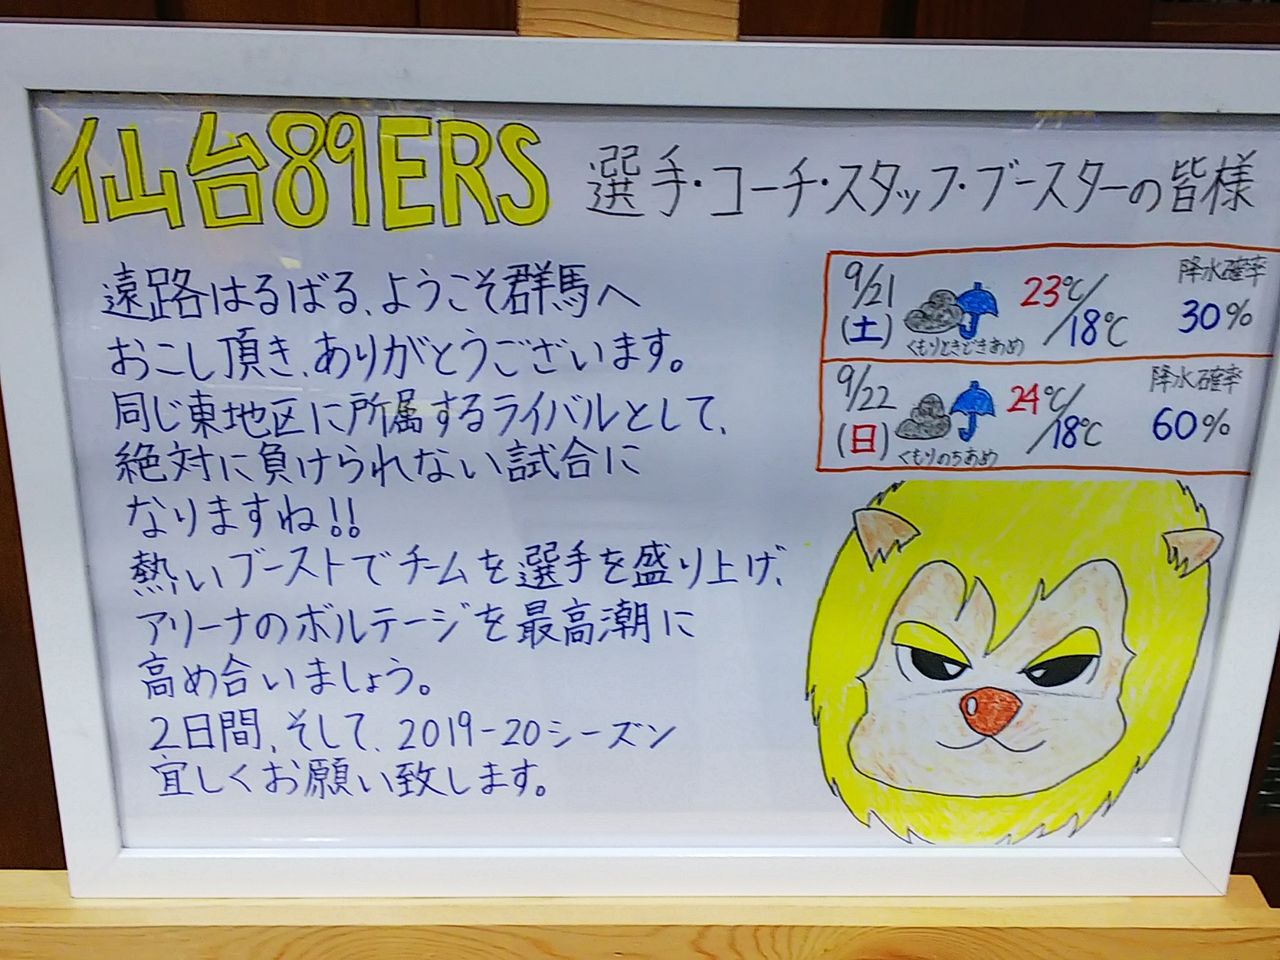 仙台89ERS 選手・コーチ・スタッフ・ブースターの皆様
遠路はるばる、ようこそ群馬へ
おこし頂き、ありがとうございます。
同じ東地区に所属するライバルとして、
絶対に負けられない試合に
なりますね!!
熱いブーストでチームを選手を盛り上げ、
アリーナのボルテージを最高潮に
高め合いましょう。
2日間、そして、2019-20シーズン
宜しくお願い致します。
9/21
(土)
くもりときどきあめ
23℃/18℃
降水確率
30%
9/22
(日)
くもりのちあめ
24℃/18℃
降水確率
60%